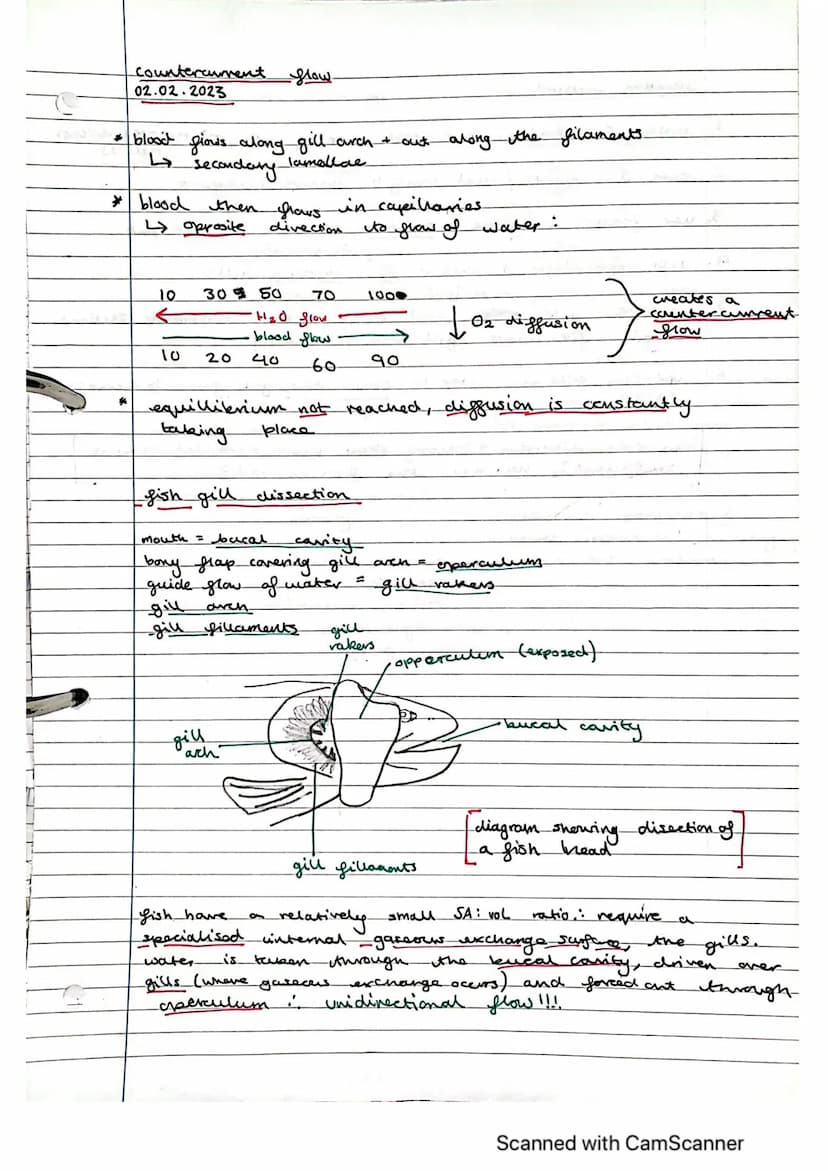 countercurrent flow
02.02.2023
* blood flows along gill arch + out along the filaments
↳ secondary lamellae
* blood then flows in capillaries
↳ opposite direction to flow of water :
10 30 50 70 100
H2O flow
blood flow
10 20 40 60 90
↓ O2 diffusion
creates a
countercurrent
flow
* equillibrium not reached, diffusion is constantly
taking place
fish gill dissection
mouth = bucal cavity
bony flap covering gill arch = operculum
guide flow of water = gill rakers
gill arch
gill fillaments
gill
rakers
opperculum (exposed)
bucal cavity
gill
arch
gill fillaments
[diagram showing disection of
a fish head]
fish have a relatively small SA: vol ratio ∴ require a
specialised internal gaseous exchange surface, the gills.
water is taken through the bucal cavity, driven over
gills (where gaseous exchange occurs) and forced out through
operculum ∴ unidirectional flow!!!
Scanned with CamScanner